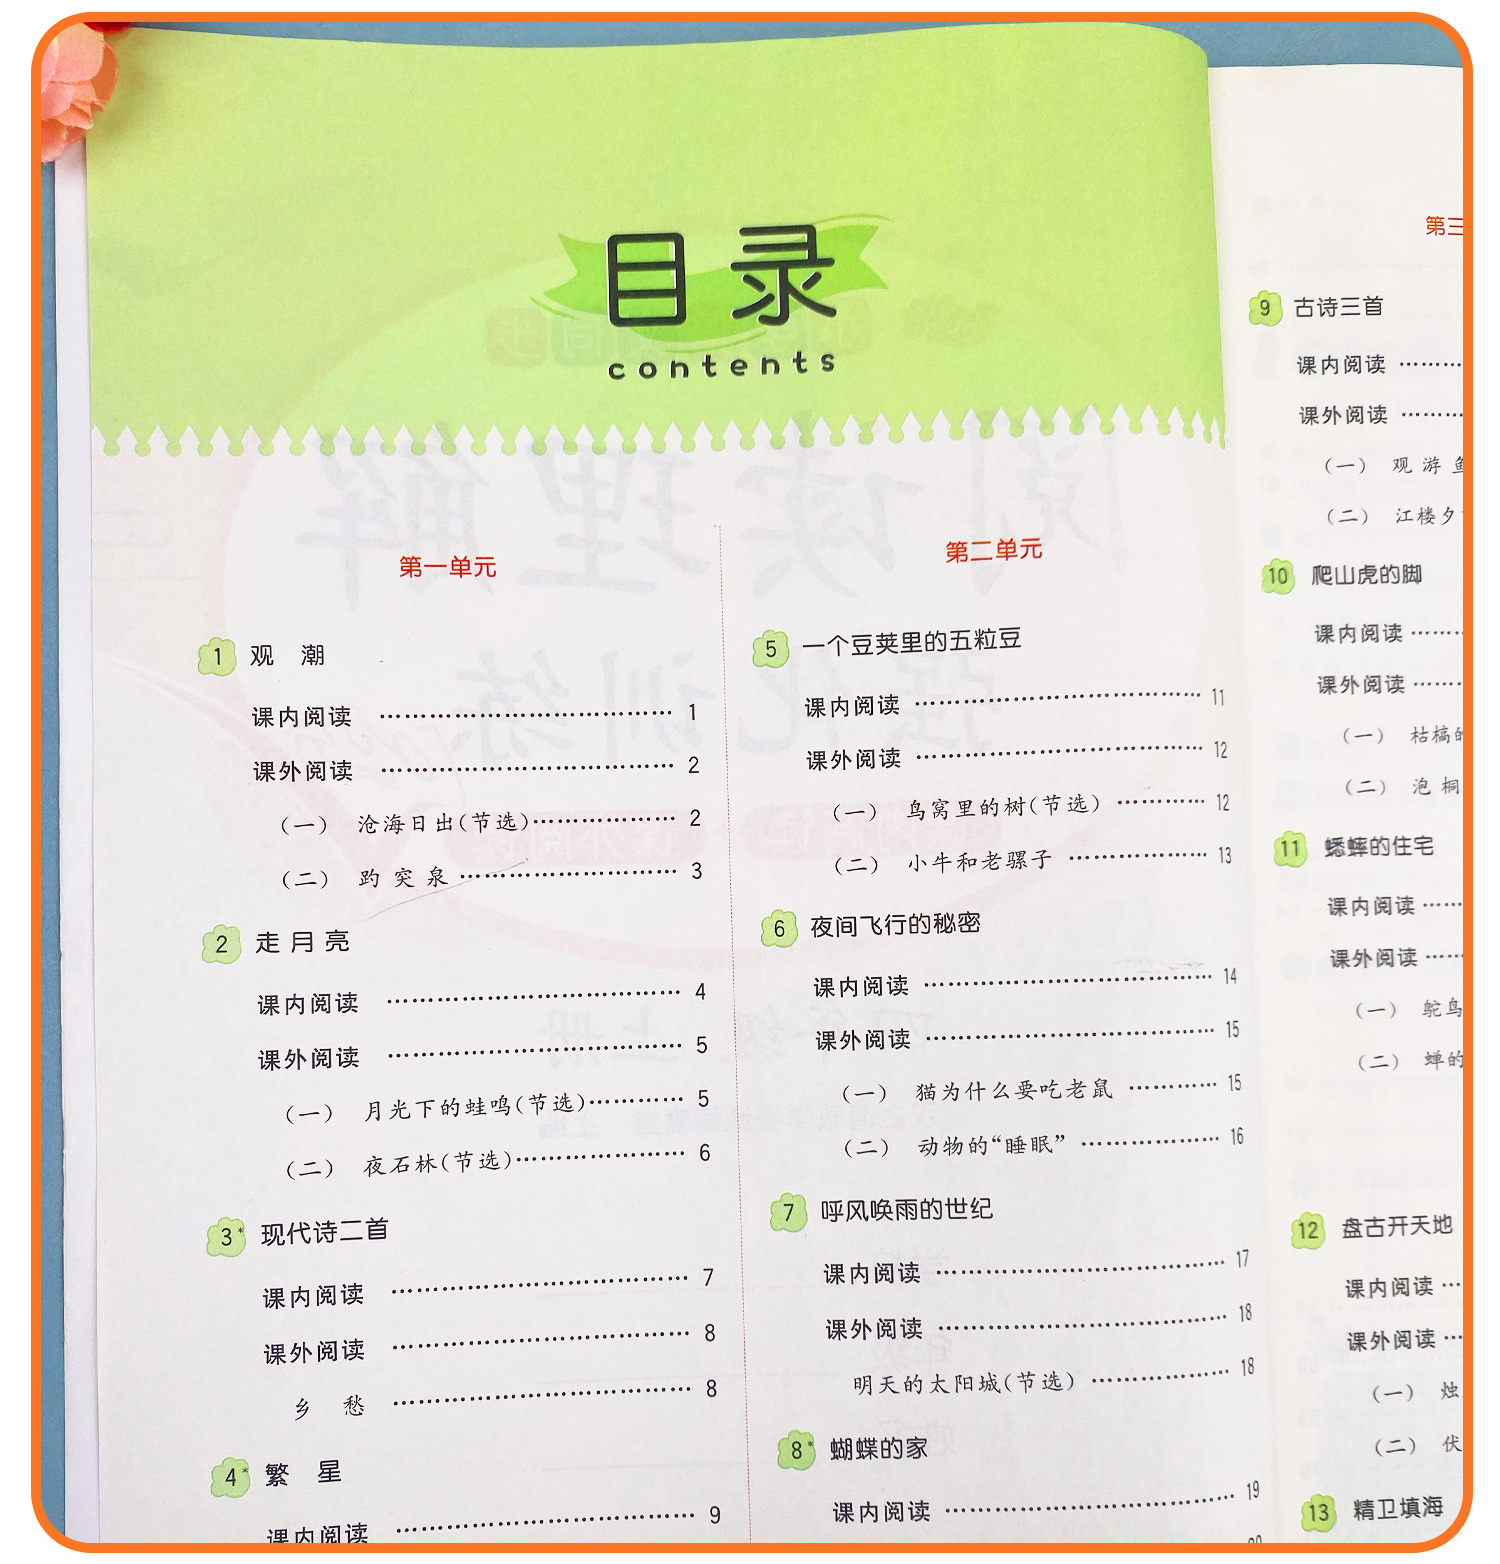 目录
contents
第一单元
1 观 潮
课内阅读 ………………………………… 1
课外阅读 ………………………………… 2
（一） 沧海日出(节选)……………… 2
（二） 趵 突 泉 ……………………… 3
2 走 月 亮
课内阅读 ………………………………… 4
课外阅读 ………………………………… 5
（一） 月光下的蛙鸣(节选)………… 5
（二） 夜石林(节选)………………… 6
3* 现代诗二首
课内阅读 ………………………………… 7
课外阅读 ………………………………… 8
乡 愁 ………………………………… 8
4* 繁 星
课内阅读 ………………………………… 9
第二单元
5 一个豆荚里的五粒豆
课内阅读 ………………………………… 11
课外阅读 ………………………………… 12
（一） 鸟窝里的树(节选) ………… 12
（二） 小牛和老骡子 ……………… 13
6 夜间飞行的秘密
课内阅读 ………………………………… 14
课外阅读 ………………………………… 15
（一） 猫为什么要吃老鼠 ………… 15
（二） 动物的“睡眠” ……………… 16
7 呼风唤雨的世纪
课内阅读 ………………………………… 17
课外阅读 ………………………………… 18
明天的太阳城(节选) ……………… 18
8* 蝴蝶的家
课内阅读 ………………………………… 19
第三
9 古诗三首
课内阅读 ………
课外阅读 ………
（一） 观 游 鱼
（二） 江楼夕
10 爬山虎的脚
课内阅读 ………
课外阅读 ………
（一） 枯槁的
（二） 泡 桐
11 蟋蟀的住宅
课内阅读 ……
课外阅读 ……
（一） 鸵鸟
（二） 蝉的
12 盘古开天地
课内阅读 …
课外阅读 …
（一） 烛
（二） 伏
13 精卫填海